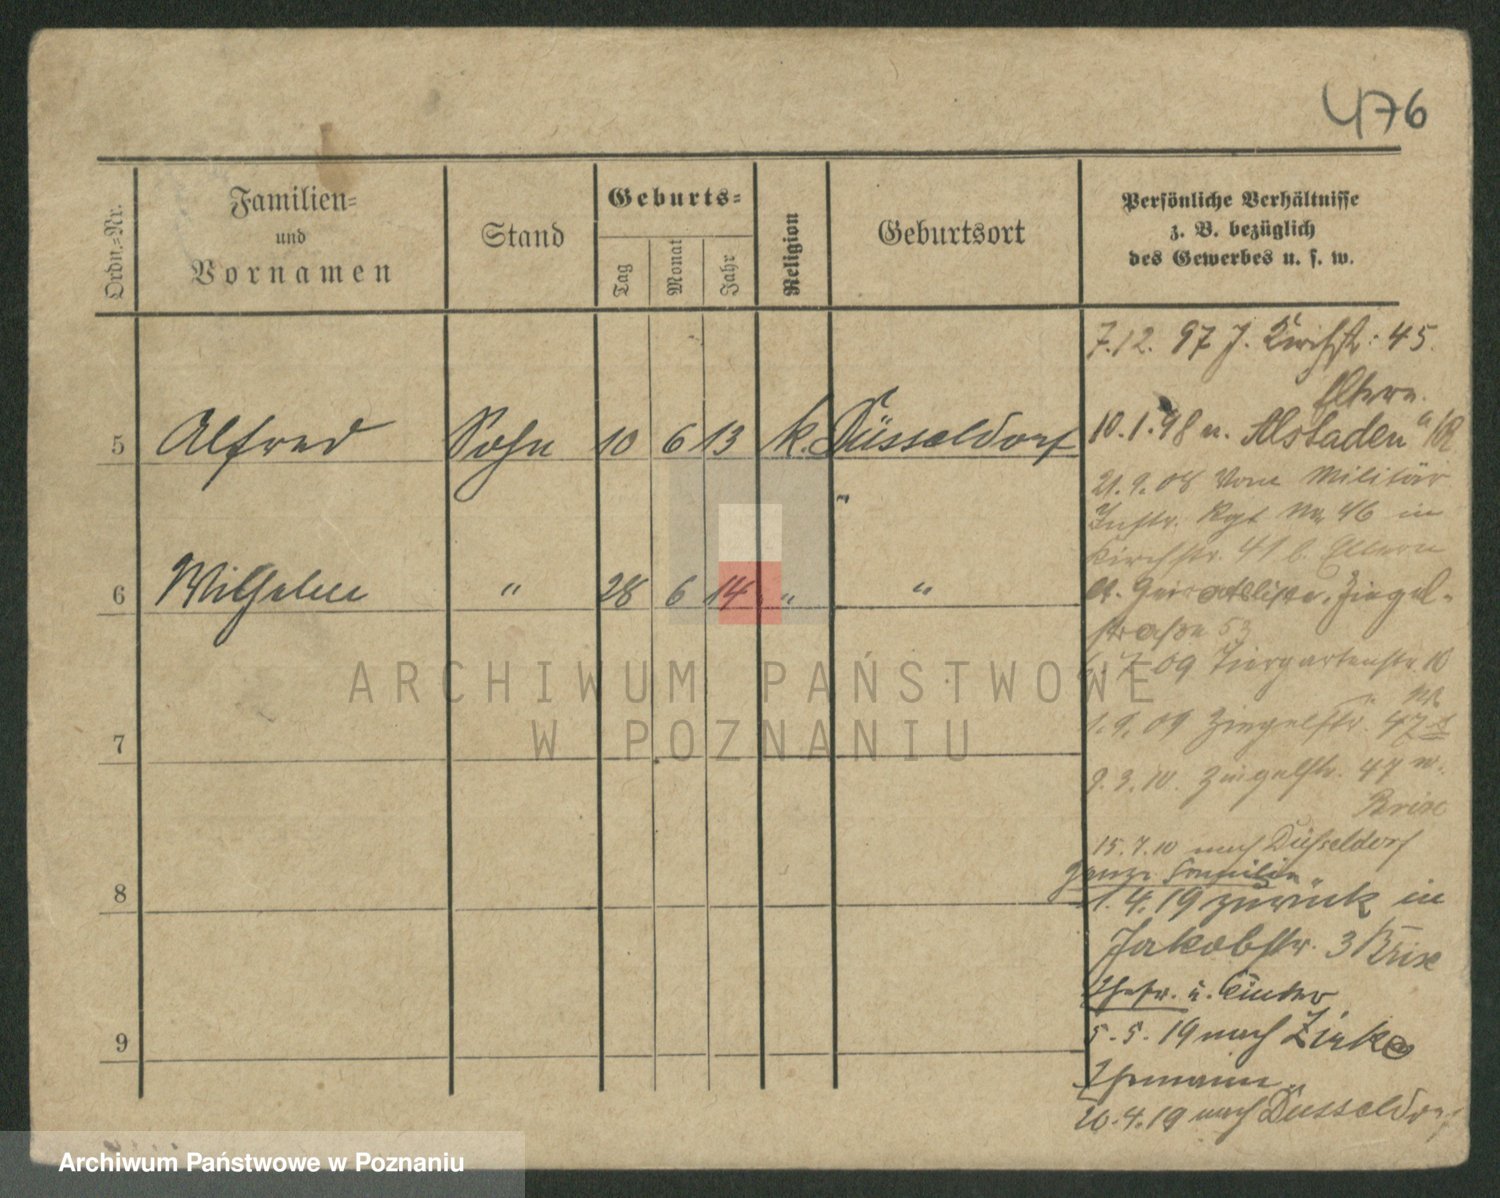 476
Ordn.=Nr.
Familien=
und
Vornamen
Stand
Geburts=
Tag
Monat
Jahr
Religion
Geburtsort
Persönliche Verhältnisse
z. B. bezüglich
des Gewerbes u. s. w.
7.12. 97 J. Kirchstr: 45.
Eltern.
5 Alfred Sohn 10 6 13 k. Düsseldorf
10.1.98 n. Alstaden a/R
21.9.08 vom Militär
Inftr. Rgt Nr. 46 in
Kirchstr. 41 b. Eltern
6 Wilhelm " 28 6 14 " "
lt. Heiratsliste, Ziegel-
straße 53
7.09 Tiergartenstr. 10
1.9.09 Ziegelstr. 47
7
9.3.10. Ziegelstr. 47 n.
Brixe
15.7.10 nach Düsseldorf
ganze Familie
8
1.4.19 zurück in
Jakobstr. 3 Brixe
Ehefr. u. Kinder
9
5.5.19 nach Zirke
Ehemann
20.4.19 nach Düsseldorf
ARCHIWUM PAŃSTWOWE
W POZNANIU
Archiwum Państwowe w Poznaniu